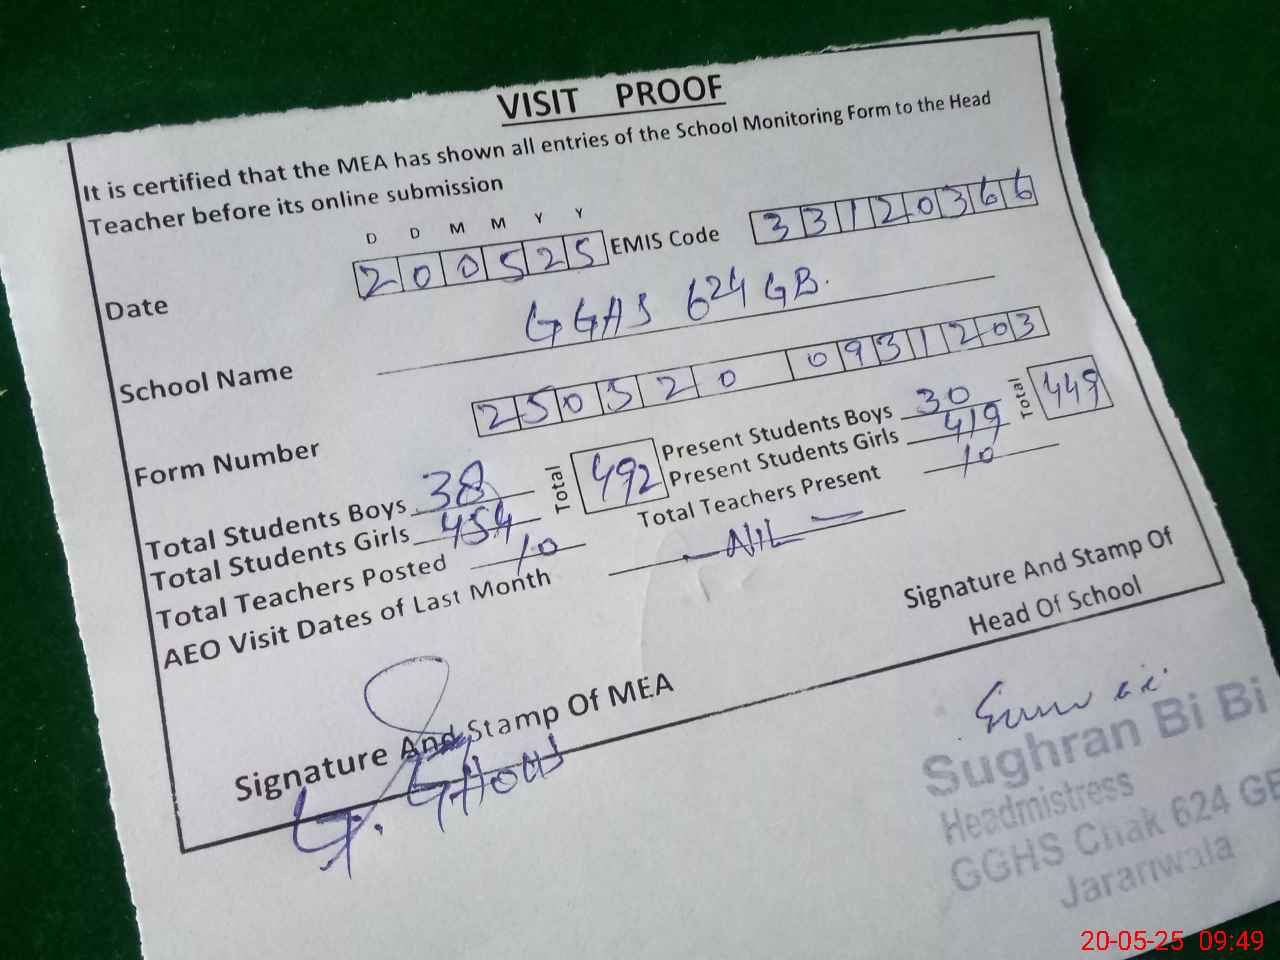 VISIT PROOF
It is certified that the MEA has shown all entries of the School Monitoring Form to the Head
Teacher before its online submission
D D M M Y Y
Date 200525 EMIS Code 33120366
School Name GGHS 624 GB.
Form Number 250520 0931203
Total Students Boys 38 Total 492 Present Students Boys 30 Total 449
Total Students Girls 454 Present Students Girls 419
Total Teachers Posted 10 Total Teachers Present 10
AEO Visit Dates of Last Month - NIL -
Signature And Stamp Of MEA
Signature And Stamp Of
Head Of School
G. GHOUS
Sughran Bi Bi
Headmistress
GGHS Chak 624 GB
Jaranwala
20-05-25 09:49